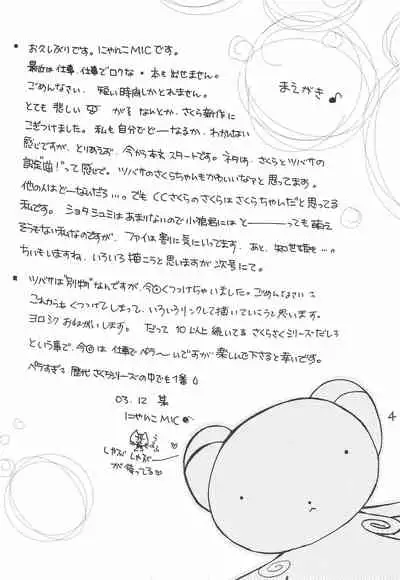 まえがき♪
• お久しぶりです。にゃんこMICです。
最近は仕事、仕事でロクな・本も出せません。
ごめんなさい、短い時間しかとれません。
とても悲しい が なんとか、さくら新作に
こぎつけました。私も自分でどーなるか、わかんない
感じですが、とりあえず、今から本文スタートです。ネタは、さくらとツバサの
設定"歯!"って感じで。ツバサのさくらちゃんもかわいいなァと思ってます。
他の人はどーなんだろ…。でもCCさくらのさくらはさくらちゃんだと思ってる
私です。ショタシュミはあまりないので小狼君にはとーーーっても萌え
そうもない私なのですが、ファイは割に気にいってます。あと、知世姫も…。
ちいもいますね、いろいろ描こうと思いますが次号にて。
• ツバサは"別物"なんですが、今回くっつけちゃいました。ごめんなさい
これからもくっつけてしまって、いろいろリンクして描いていこうと思います。
ヨロシクおねがいします。だって10以上続いてるさくらさくシリーズだしネ
という事で、今回は仕事でペラ〜いですが楽しんで下さると幸いです。
ペラすぎる 歴代さくらシリーズの中でも1番
03.12 某
にゃんこMIC
しゃぶしゃぶ
が待ってる
4